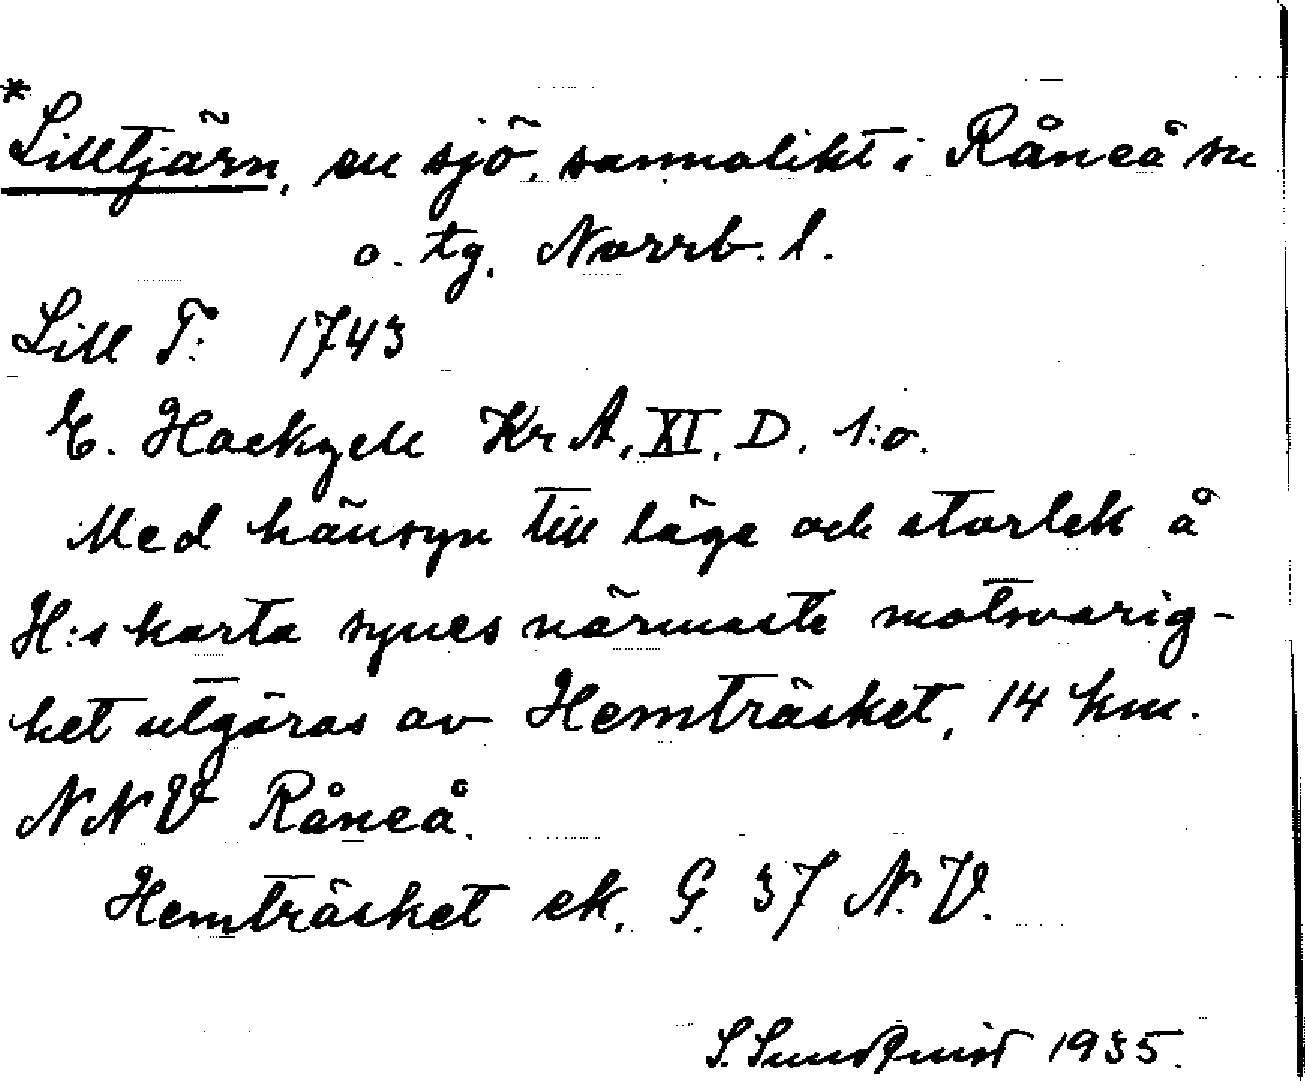 *Lilltjärn, en sjö, sannolikt i Råneå sn
o. tg. Norrb. l.
Lill T: 1743
E. Hackzell KrA, XI, D, 1:o.
Med hänsyn till läge och storlek å
H:s karta synes närmaste motsvarig-
het utgöras av Hemträsket, 14 km.
NNV Råneå.
Hemträsket ek. G. 37 N.V.
S. Sundqvist 1935.